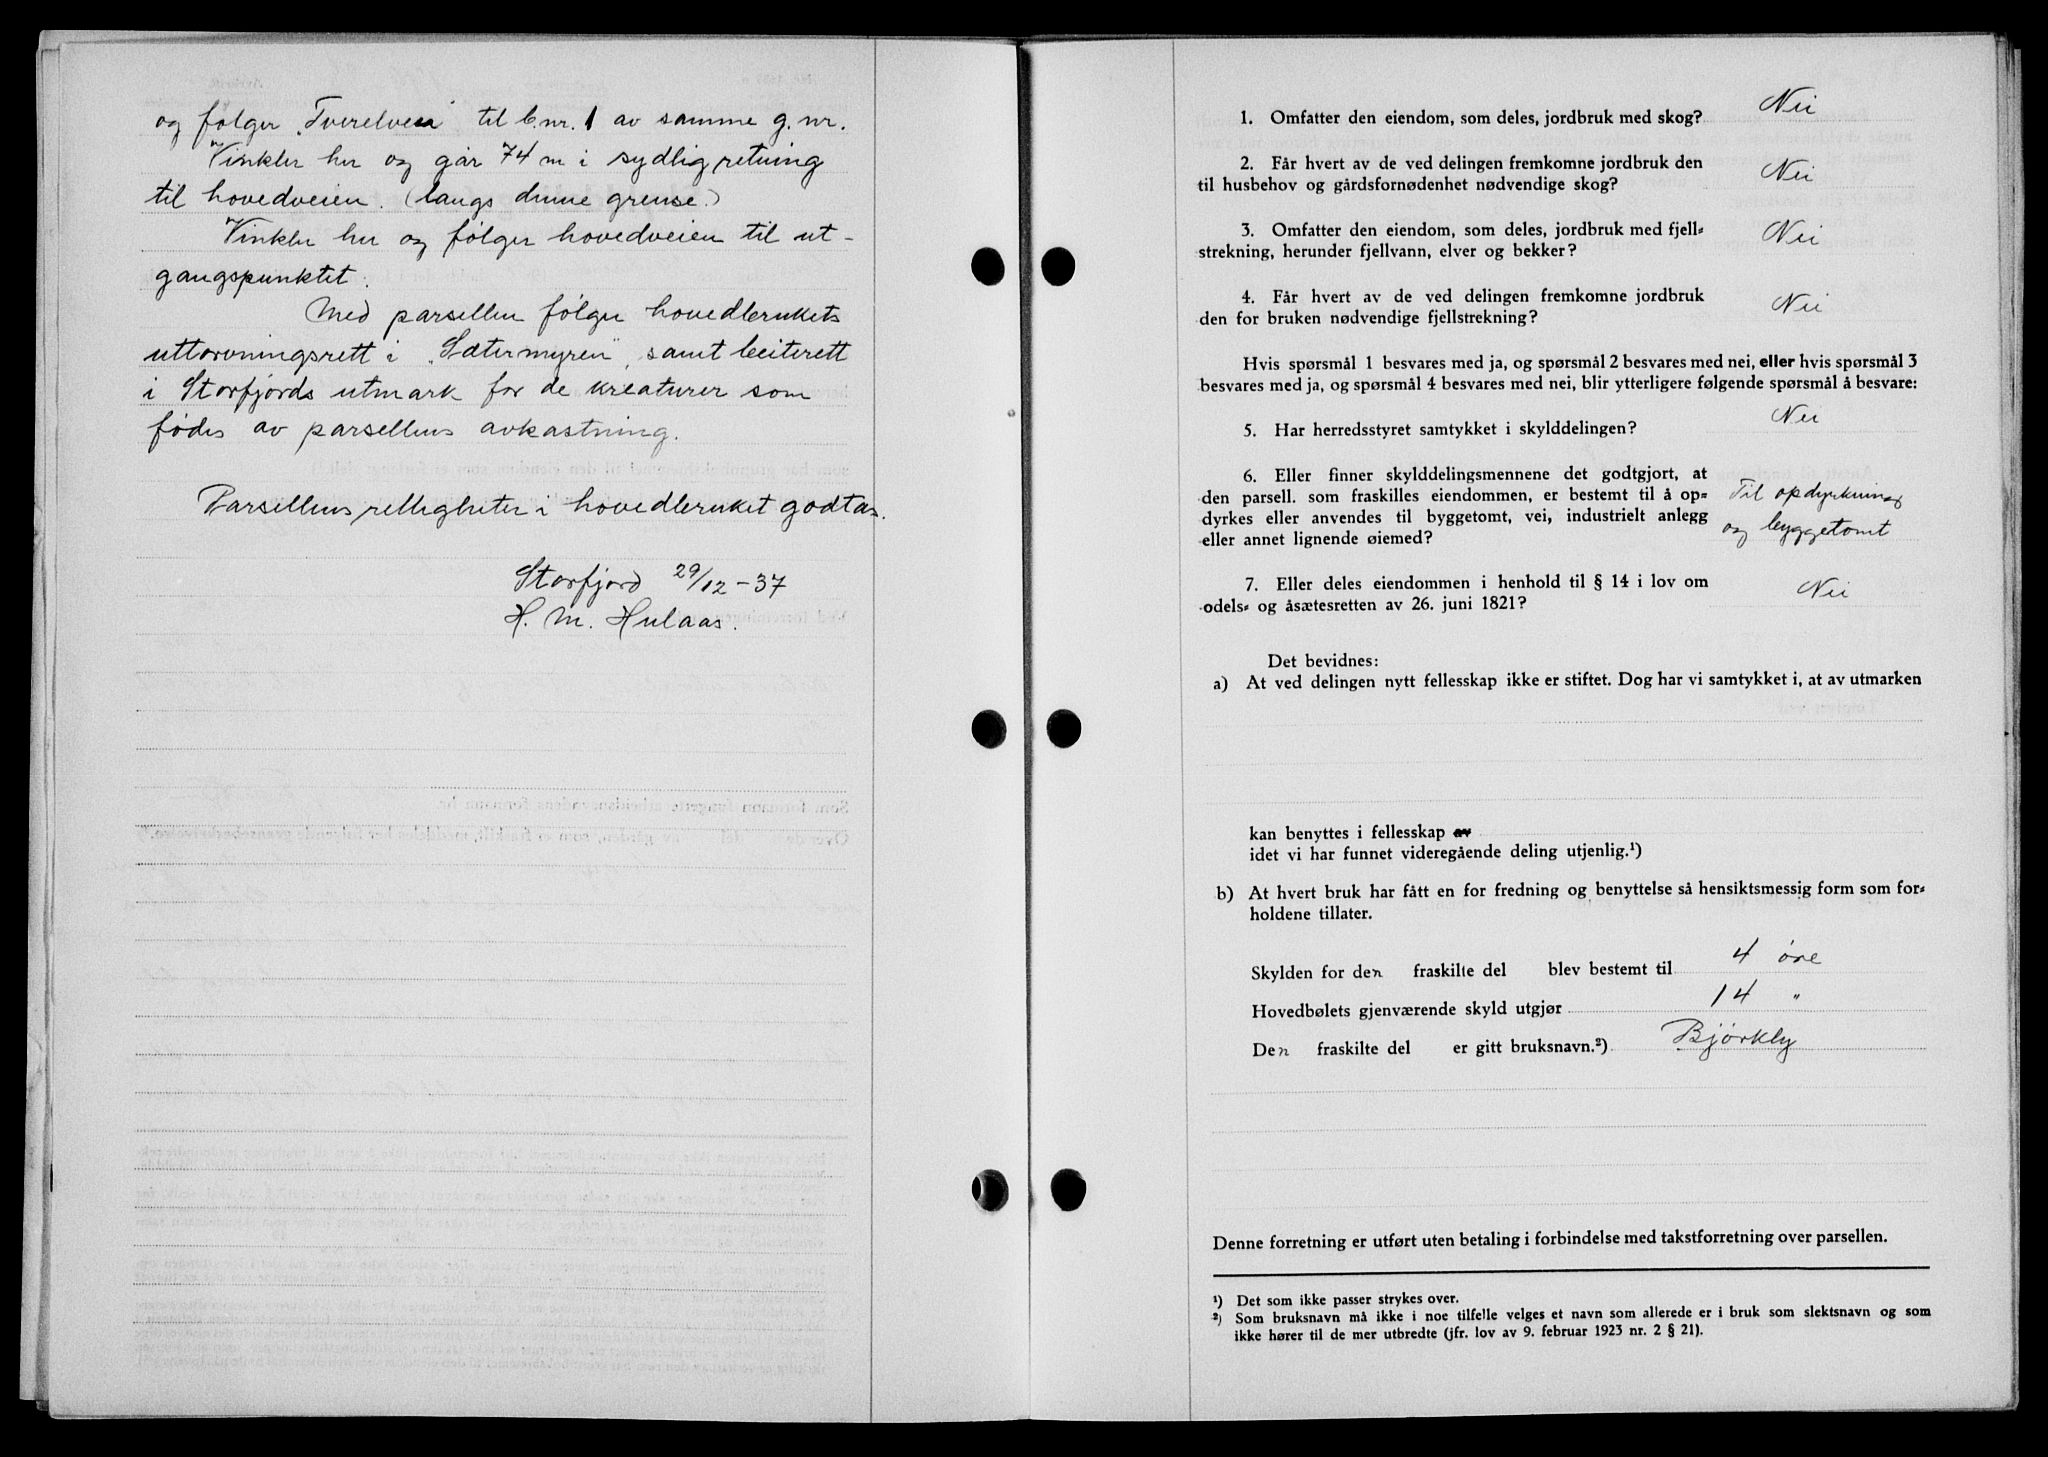 og følger „Tverelven" til b.nr. 1 av samme g.nr.
Vinkler her og går 74 m i sydlig retning
til hovedveien. (langs denne grense.)
Vinkler her og følger hovedveien til ut-
gangspunktet.
Med parsellen følger hovedbrukets
uttorvningsrett i „Sætermyren", samt beiterett
i Storfjords utmark for de kreaturer som
fødes av parsellens avkastning.
Parsellens rettigheter i hovedbruket godtas.
Storfjord 29/12-37
H. M. Hulaas.
1. Omfatter den eiendom, som deles, jordbruk med skog? Nei
2. Får hvert av de ved delingen fremkomne jordbruk den
til husbehov og gårdsfornødenhet nødvendige skog? Nei
3. Omfatter den eiendom, som deles, jordbruk med fjell-
strekning, herunder fjellvann, elver og bekker? Nei
4. Får hvert av de ved delingen fremkomne jordbruk
den for bruken nødvendige fjellstrekning? Nei
Hvis spørsmål 1 besvares med ja, og spørsmål 2 besvares med nei, eller hvis spørsmål 3
besvares med ja, og spørsmål 4 besvares med nei, blir ytterligere følgende spørsmål å besvare:
5. Har herredsstyret samtykket i skylddelingen? Nei
6. Eller finner skylddelingsmennene det godtgjort, at
den parsell. som fraskilles eiendommen, er bestemt til å op-
dyrkes eller anvendes til byggetomt, vei, industrielt anlegg
eller annet lignende øiemed?
Til opdyrkning
og byggetomt
7. Eller deles eiendommen i henhold til § 14 i lov om
odels- og åsætesretten av 26. juni 1821? Nei
Det bevidnes:
a) At ved delingen nytt fellesskap ikke er stiftet. Dog har vi samtykket i, at av utmarken
kan benyttes i fellesskap av
idet vi har funnet videregående deling utjenlig.¹)
b) At hvert bruk har fått en for fredning og benyttelse så hensiktsmessig form som for-
holdene tillater.
Skylden for den fraskilte del blev bestemt til 4 øre
Hovedbølets gjenværende skyld utgjør 14 "
Den fraskilte del er gitt bruksnavn.²) Bjørkly
Denne forretning er utført uten betaling i forbindelse med takstforretning over parsellen.
¹) Det som ikke passer strykes over.
²) Som bruksnavn må ikke i noe tilfelle velges et navn som allerede er i bruk som slektsnavn og som
ikke hører til de mer utbredte (jfr. lov av 9. februar 1923 nr. 2 § 21).